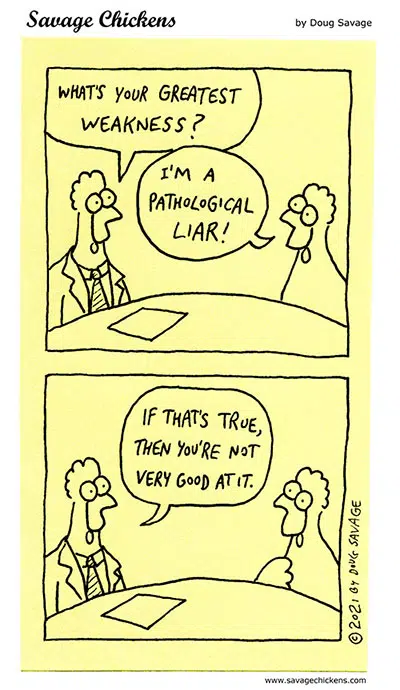 Savage Chickens
by Doug Savage
WHAT'S YOUR GREATEST
WEAKNESS?
I'M A
PATHOLOGICAL
LIAR!
IF THAT'S TRUE,
THEN YOU'RE NOT
VERY GOOD AT IT.
© 2021 BY DOUG SAVAGE
www.savagechickens.com